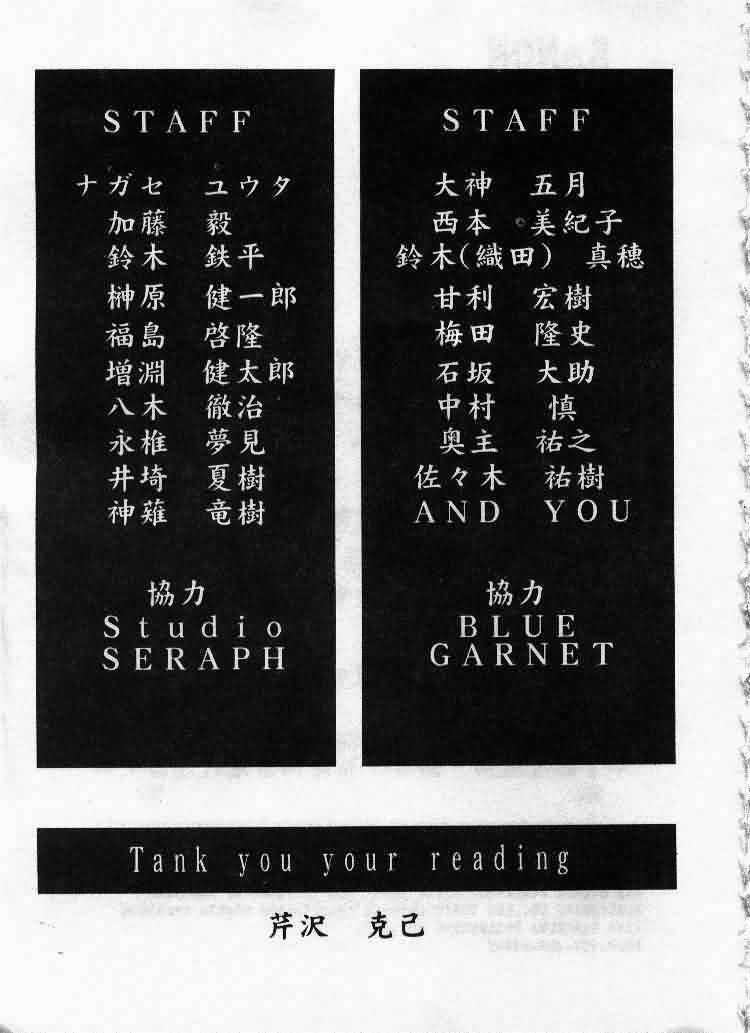 STAFF
ナガセ ユウタ
加藤 毅
鈴木 鉄平
榊原 健一郎
福島 啓隆
増淵 健太郎
八木 徹治
永椎 夢見
井埼 夏樹
神薙 竜樹
協力
Studio
SERAPH
STAFF
大神 五月
西本 美紀子
鈴木(織田) 真穂
甘利 宏樹
梅田 隆史
石坂 大助
中村 慎
奥主 祐之
佐々木 祐樹
AND YOU
協力
BLUE
GARNET
Tank you your reading
芹沢 克己